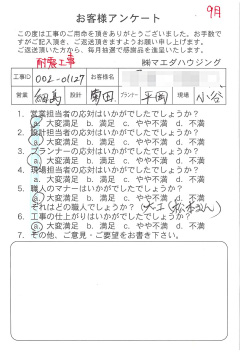 9月
お客様アンケート
この度は工事のご用命を頂きありがとうございました。お手数で
すがご記入頂き、ご返送頂きますようお願い申し上げます。
ご返送頂いた方から、毎月抽選で感謝品を進呈いたします。
耐震工事
㈱マエダハウジング
工事ID 002-01127 お客様名
営業 細島 設計 前田 プランナー 平岡 現場 小谷
1. 営業担当者の応対はいかがでしたでしょうか?
a. 大変満足 b. 満足 c. やや不満 d. 不満
2. 設計担当者の応対はいかがでしたでしょうか?
a. 大変満足 b. 満足 c. やや不満 d. 不満
3. プランナーの応対はいかがでしたでしょうか?
a. 大変満足 b. 満足 c. やや不満 d. 不満
4. 現場担当者の応対はいかがでしたでしょうか?
a. 大変満足 b. 満足 c. やや不満 d. 不満
5. 職人のマナーはいかがでしたでしょうか?
a. 大変満足 b. 満足 c. やや不満 d. 不満
それはどの職人でしょうか? (大工(松本さん)
6. 工事の仕上がりはいかがでしたでしょうか?
a. 大変満足 b. 満足 c. やや不満 d. 不満
7. その他、ご意見・ご要望をお書き下さい。